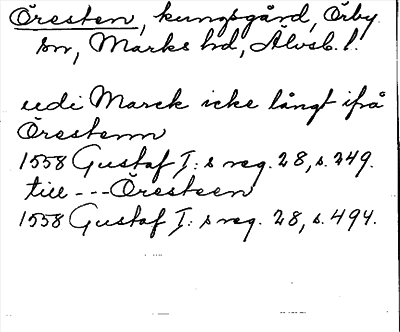 Öresten, kungsgård, Örby
sn, Marks hd, Älvsb. l.
udi Marck icke långt ifrå
Örestenn
1558 Gustaf I: s reg. 28, s. 249.
till --- Öresteen
1558 Gustaf I: s reg. 28, s. 494.